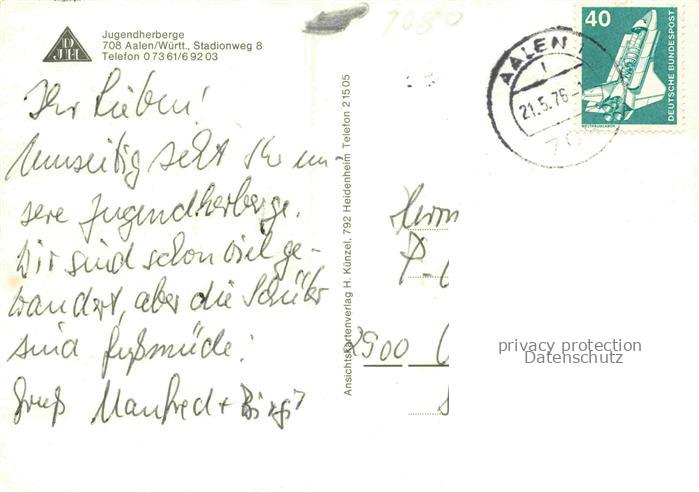 DJH
Jugendherberge
708 Aalen/Württ., Stadionweg 8
Telefon 0 73 61/6 92 03
7080
Ihr Lieben!
Umseitig seht Ihr un-
sere Jugendherberge.
Wir sind schon viel ge-
wandert, aber die Schüler
sind fußmüde!
Gruß Manfred + Birgit
Ansichtskartenverlag H. Künzel, 792 Heidenheim Telefon 2 15 05
AALEN 1
21.5.76
70
40
DEUTSCHE BUNDESPOST
WELTRAUMLABOR
Herrn
P-
2900
privacy protection
Datenschutz